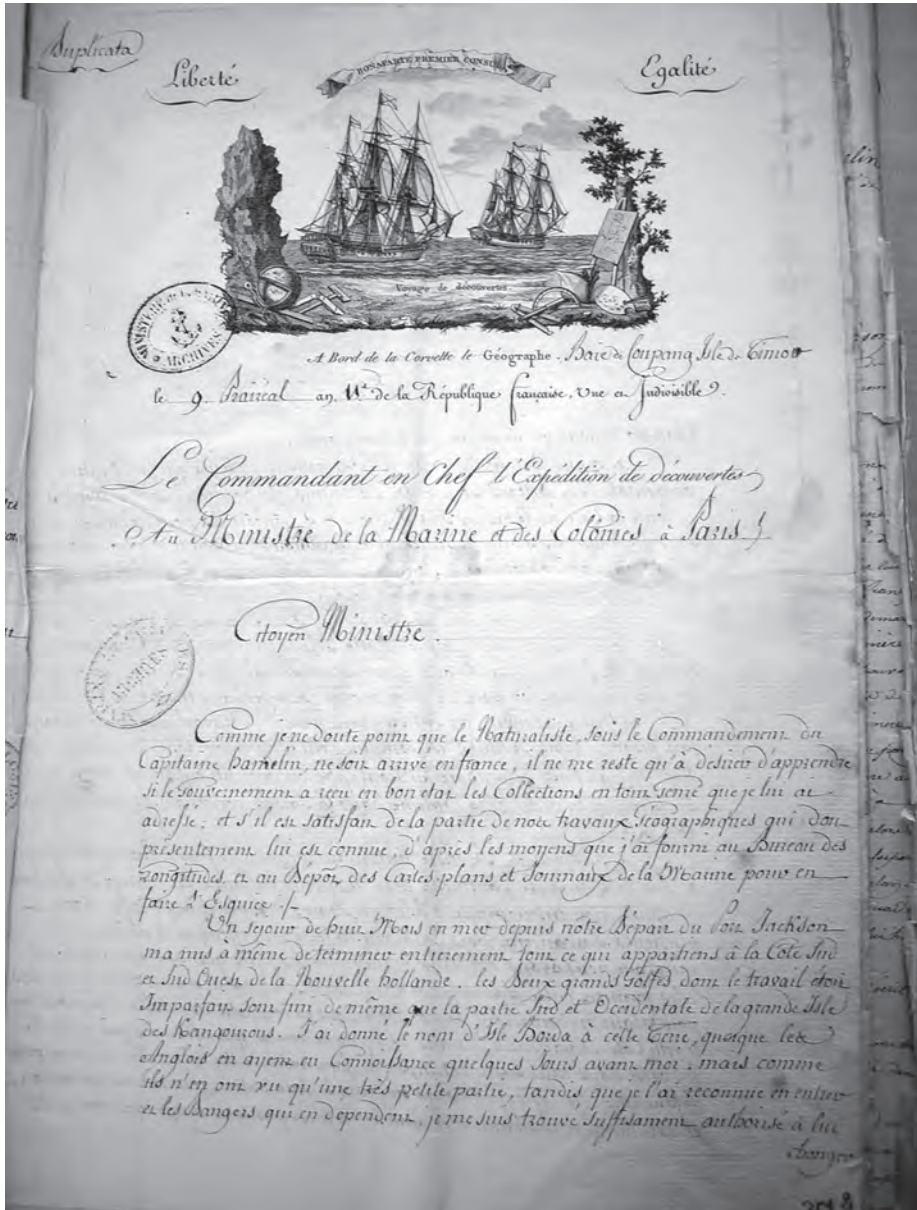 Duplicata
Liberté
BONAPARTE PREMIER CONSUL
Egalité
Voyage de découvertes.
ARCHIVES
A Bord de la Corvette le Géographe. Baie de Coupang Isle de Timor
le 9 Prairéal an 11e de la République française, Une et Indivisible.
Le Commandant en Chef l'Expédition de découvertes
Au Ministre de la Marine et des Colonies à Paris
Citoyen Ministre.
ARCHIVES
Comme je ne doute point que le Naturaliste, sous le Commandement du
Capitaine hamelin, ne soit arrivé en france, il ne me reste qu'à desirer d'apprendre
si le Gouvernement a reçu en bon état les Collections en tout genre que je lui ai
adressé; et s'il est satisfait de la partie de nos travaux Géographiques qui dont
présentement lui est connue, d'après les moyens que j'ai fourni au Bureau des
Longitudes et au Dépôt des Cartes, plans et Journaux de la Marine pour en
faire l'Esquice ./.
Un sejour de huit Mois en mer depuis nôtre Départ du Port Jackson
ma mis à même de determiner entierement tout ce qui appartiens à la Côte Sud
et Sud Ouest de la Nouvelle hollande. les Deux grands Golfes dont le travail étoit
Imparfait sont fini de même que la partie Sud et Occidentale de la grande Isle
des Kangourous. J'ai donné le nom d'Isle Borda à cette Terre, quoique les
Anglois en ayent eu Connoissance quelques Jours avant moi; mais comme
ils n'en ont vu qu'une très petite partie, tandis que je l'ai reconnue en entier
et les Dangers qui en dependent, je me suis trouvé Suffisament authorisé à lui
changer